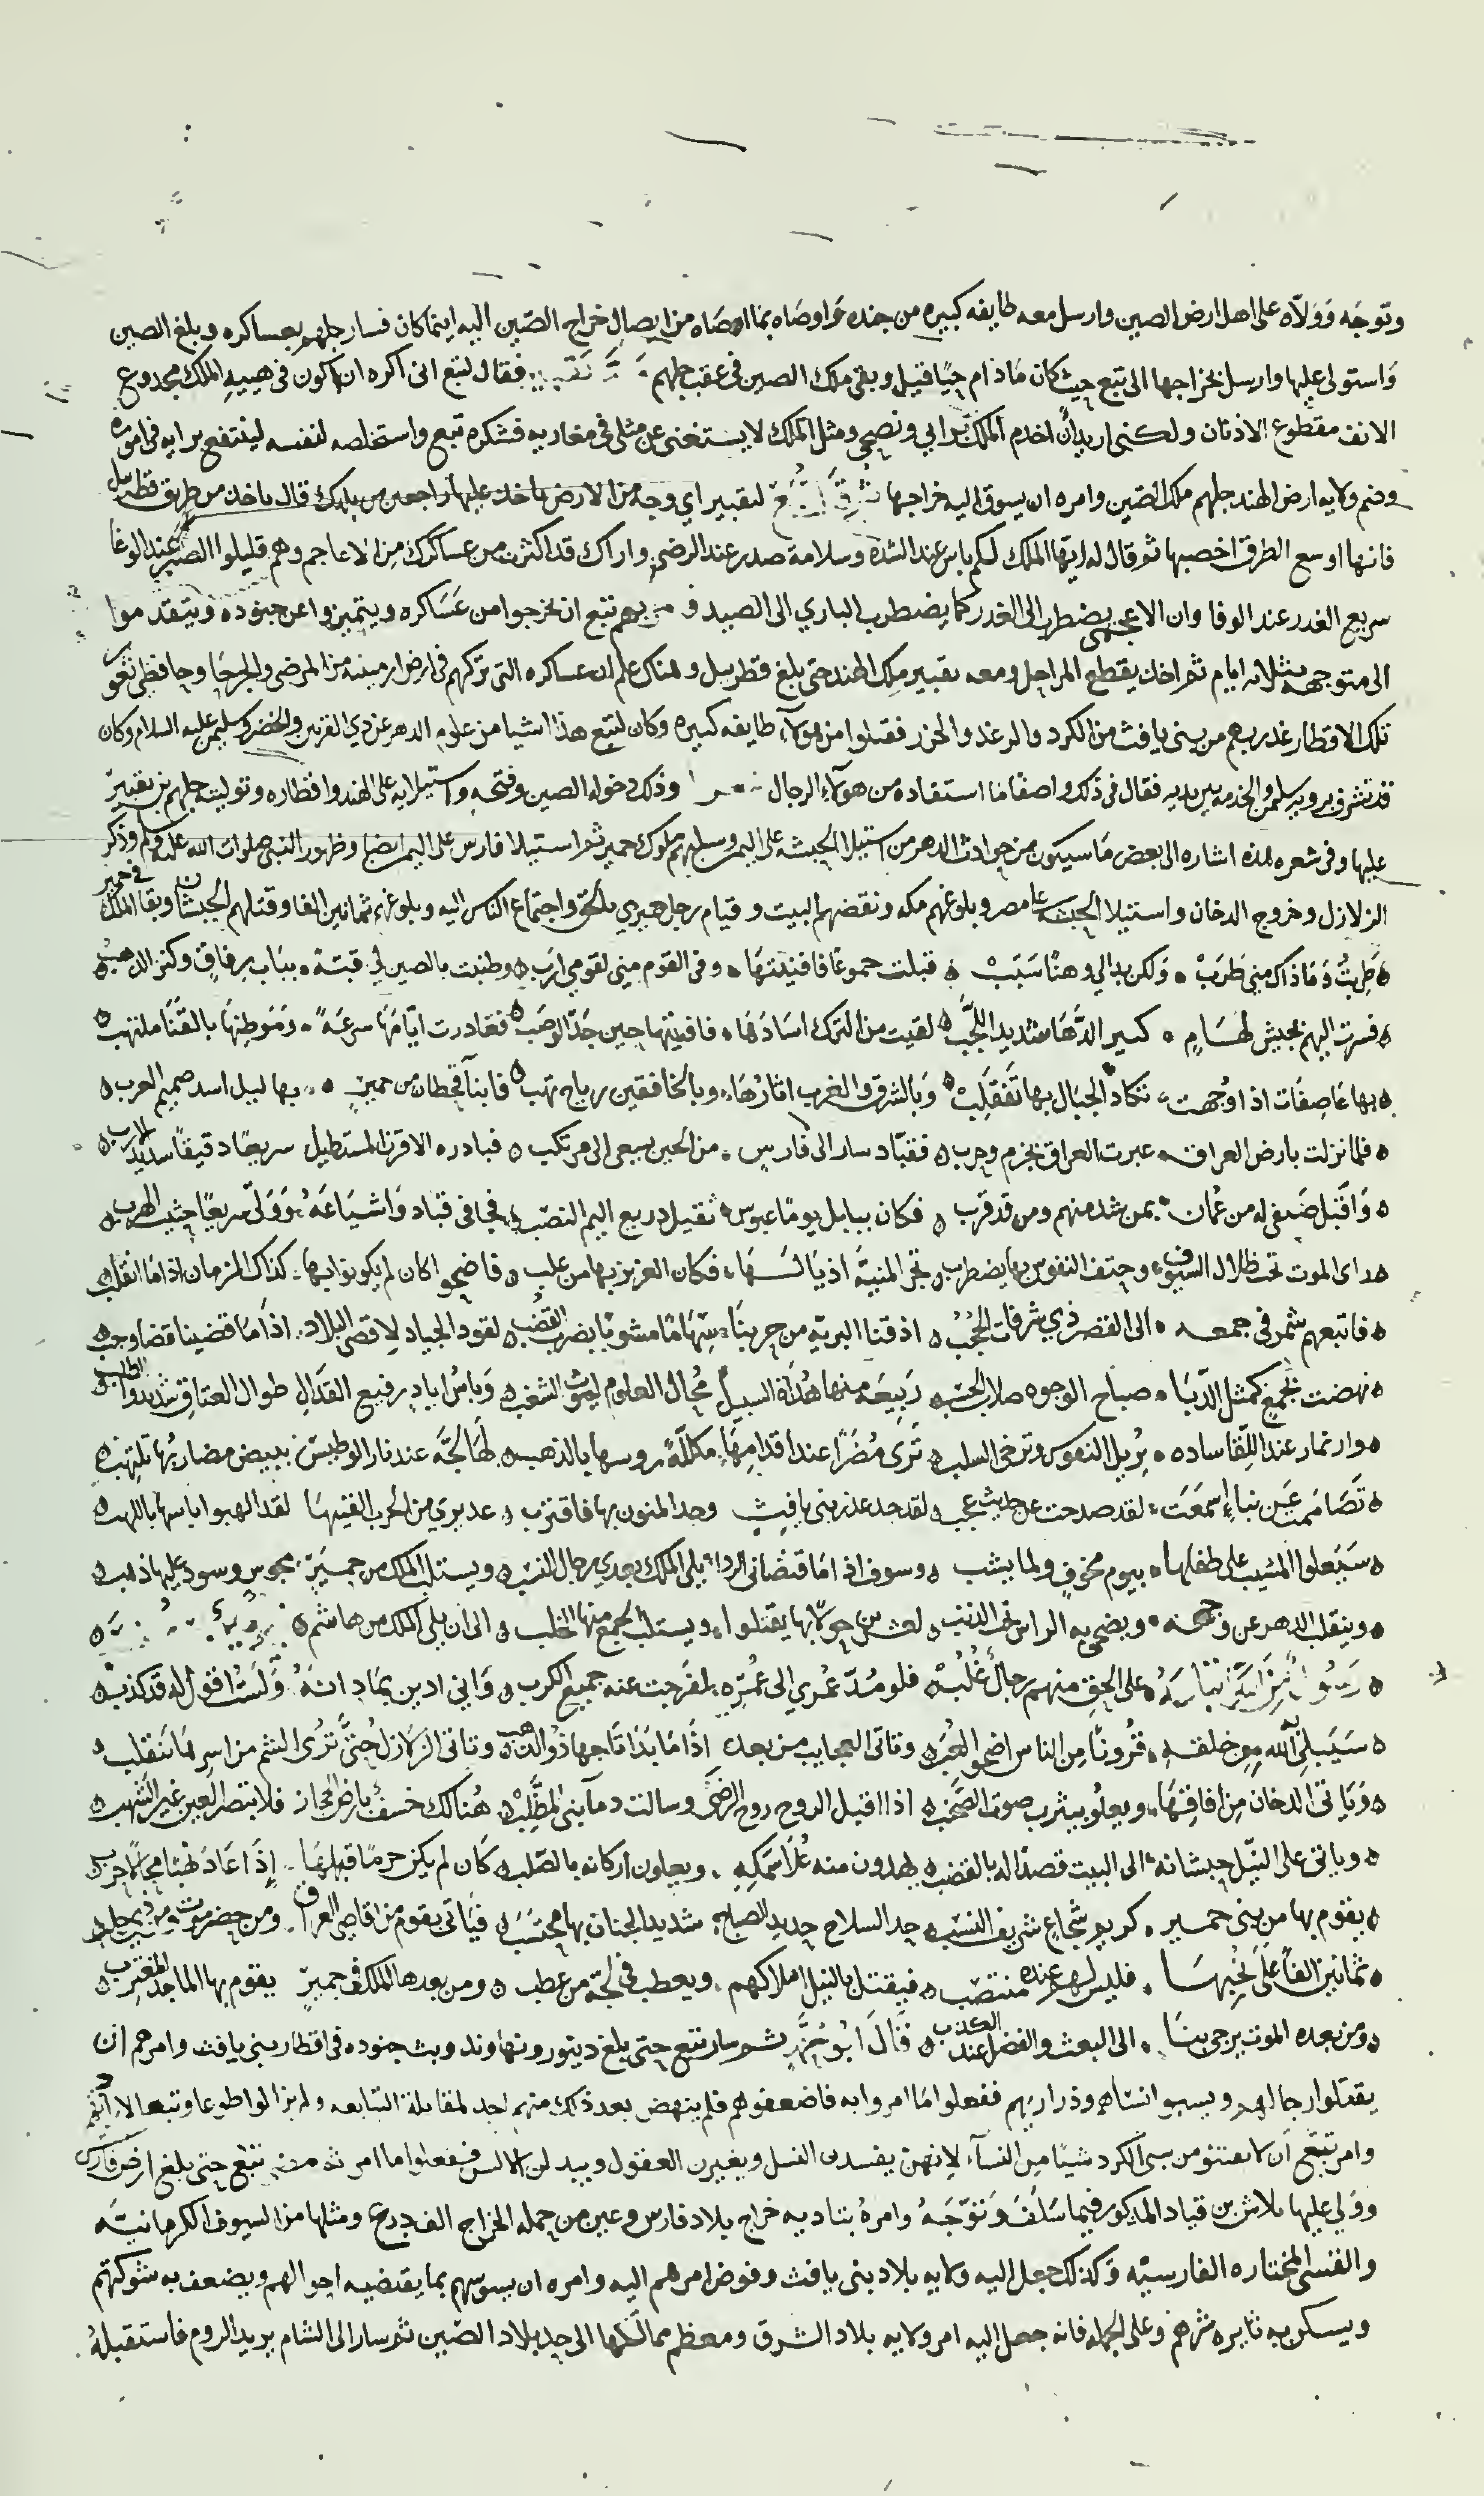 وتوجه وولاه على اهل ارض الصين وارسل معه طايفه كبيره من جنده واوصاه بما اوصاه من ايصال خراج الصين اليه اينما كان فسار جلهم بعساكره وبلغ الصين
واستولى عليها وارسل بخراجها الى تبع حيث كان مادام حيا فيل وبقى ملك الصين فى عقب جلهم فقال لتبع انى اكره ان اكون فى هيبه الملك مجدوع
الانف مقطوع الاذنان ولكنى اريد أن اخدم الملك برايي ونصيحي ومثل الملك لا يستغنى عن مثلى فى مغازيه فشكره تبع واستخلصه لنفسه لينتفع برايه فى اموره
وضم ولايه ارض الهند جلهم ملك الصين وامره ان يسوق اليه خراجها لتقبير اي وجه من الارض ناخذ عليها راجعين من بلدك قال ناخذ من طريق قطربيل
فانها اوسع الطرق اخصبها ثم قال له ايها الملك لكم باس عند الشده وسلامة صدر عند الرضى واراك قد اكثرت من عساكرك من الاعاجم وهم قليلوا الصبر عند الوغا
سريع الغدر عند الوفا وان الاعجمى يضطرب الى الغدر كما يضطرب البازي الى الصيد تبع ان يخرجوا من عساكره ويتميزوا عن جنوده ويتقدموا
الى متوجهه بثلاثه ايام ثم اخذ يقطع المراحل ومعه تقبير ملك الهند حتى بلغ قطربيل وهناك علم ان عساكره التى تركهم فى ارض ارمينه من المرضى والجرحا وحافظى ثغور
تلك الاقطار غدر بهم من بنى يافث من الكرد والخزر فقتلوا من هولآء طايفه كبيره وكان لتبع هذا اشيا من علوم الدهر عن ذي القرنين والخضر وسليمن عليه السلام وكان
قد تشرف برويه سليمن والخدمه بين يديه فقال فى ذلك واصفا ما استفاده من هولآء الرجال وذلك دخوله الصين وفتحه واستيلايه على الهند واقطاره وتوليته جلهم بن تقبير
عليها وفى شعره هذه اشاره الى بعض ما سيكون من حوادث الدهر من استيلا الحبشه على اليمن وسلبهم ملوك حمير ثم استيلا فارس على اليمن ايضا وظهور النبى صلوات الله عليه وسلم وذكر
الزلازل وخروج الدخان واستيلا الحبشه على مصر وبلوغهم مكه ونقضهم البيت وقيام رجل حميري واجتماع الناس اليه وبلوغهم ثمانين الفا وقتلهم الحبشان وبقا الملك فى حمير
طربت وما ذاك منى طرب ولكن بدا لي وهنا سبب قبلت جموعا فافنيتها وفى القوم منى لقومي ارب وطنبت بالصين لي قبة بباب رفاق وكنز الذهب
فسرت اليهم بجيش لهام كسير الدها شديد اللجب لقيت من الترك اسادها فافنيتها حين جد الوصب فغادرت ايامها سرعة وموطنها بالقنا ملتهب
بها عاصفات اذا وجهت تكاد الجبال بها تنقلب وبالشرق والغرب اثارها وبالخافقين رياح تهب فابنآ قحطان من حمير بهاليل اسد صميم العرب
فلما نزلت بارض العراق عبرت العراق بحزم وحرب فقباد سار الى فارس من الحين يسعى الى مرتكب فبادره الاقرن المستطيل سريعا دقيقا
واقبل ضيفى له من عمان بمن شد منهم ومن قد قرب فكان ببابل يوما عبوس ثقيل دريع اليم النصب فجافى قباد واشياعه وولى سريعا حثيث الهرب
راى الموت تحت ظلال السيوف وحتف النفوس بها يضطرب فكان العزيز بها من غلب فاضحوا كان لم يكونوا بها كذاك الزمان اذا ما انقلب
فاتبعهم شمر فى جمعه الى القصر ذي شرفات الحجب اذقنا البريه من حربنا سهاما مشوبا بضرب القضب لقود الجياد لاقصى البلاد اذا ما قضينا قضا وجب
نهضت بجمع كمثل الدبا صباح الوجوه صلاب الحسب ربيعه منها هداة السبيل محال العلوم ليوث الشغب وباس اياد رفيع القدال طوال العتاق شديدوا الطلب
وانمار عند اللقا ساده يزيل النفوس وترخى السلب ترى مضرا عند اقدامها مكللة روسها بالذهب لها لجة عند نار الوطيس ببيض مضاربها تلتهب
تصاممت عن نباء اسمعت لقد صدحت عن حديث عجب لقد جد عذر بنى يافث وحد المنون بها فاقترب عديري من الحرب الفيتها لقد الهبوا باسها باللهب
سيعلوا المشيب على طفلها بيوم مخوف ولما يشب وسوف اذا ما قضانى الردا يلى الملك بعدي رجال النسب ويستلب الملك من حمير مجوس وسود عليها
وينقلب الدهر عن وجهه ويضحى به الراس تحت الذنب ويستلب الجمع منها الخلب الى ان يلى الملك من هاشم
على الحق منهم رجال غلب فلو مد عمري الى عمره لفرجت عنه جميع الكرب وانى ادين بماد انه ولست اقول له قد كذب
سيبلى الله من خلقه قرونا من الناس اضحوا لعب وتاتى العجايب من بعده اذا ما بدا تاجها ذوالذهب وتاتى الزلازل حتى ترى الشم من اسرها تنقلب
وياتى الدخان من افاقها ويعلو بيثرب صوت الصخب اذا اقبل الروح روح الرضى وسالت دمآ بنى المطلب هنالك خسف بارض الحجاز فلا تبصر العين غير الشهب
وياتى على النيل حبشانه الى البيت قصدا له بالغضب يهدون منه علا سمكه ويعلون اركانه بالصلب كان لم يكن حرما قبلها
يقوم بها من بنى حمير كريم شجاع شريف النسب حد السلاح حديد الصباح شديد الجنان بها محتسب فياتى بقوم من اقاصى العراق ومن حضرموت
ثمانين الفا على نجبها فليس لهم عنده منتصب فيقتل بالنيل املاكهم ويعطب فى لجة من عطب ومن بعدها الملك فى حمير يقوم بها الماجد
ومن بعده الموت يرجى بنا الى البعث والفضل عند الكذب قال ابو محمد ثم سار تبع حتى بلغ دينور ونهاوند وبث جنوده فى اقطار بنى يافث وامرهم ان
يقتلوا رجالهم ويسبوا نساهم وذراريهم ففعلوا ما امروا به فاضعفوهم فلم ينهض بعد ذلك منهم احد لمقابلة التبابعه ولم يزالوا طوعا وتبعا
وامر تبع أن لا يعتنقوا من سبى الكرد شيا من النسآء لانهن يفسدن النسل ويغيرن العقول ففعلوا ما امر تبع حتى بلغ ارض فارس
وولي عليها بلاش بن قباد المذكور فيما سلف وتوجه وامره بتاديه خراج بلاد فارس وعين من جمله الخراج الف درع ومثلها من السيوف الكرمانيه
والقسى المختاره الفارسيه وكذلك جعل اليه ولايه بلاد بنى يافث وفوض امرهم اليه وامره ان يسوسهم بما يقتضيه احوالهم ويضعف به شوكتهم
ويسكن به ثايره شرهم وعلى الجمله فانه جعل اليه امر ولايه بلاد الشرق ومعظم ممالكها الى حد بلاد الصين ثم سار الى الشام يريد الروم فاستقبله